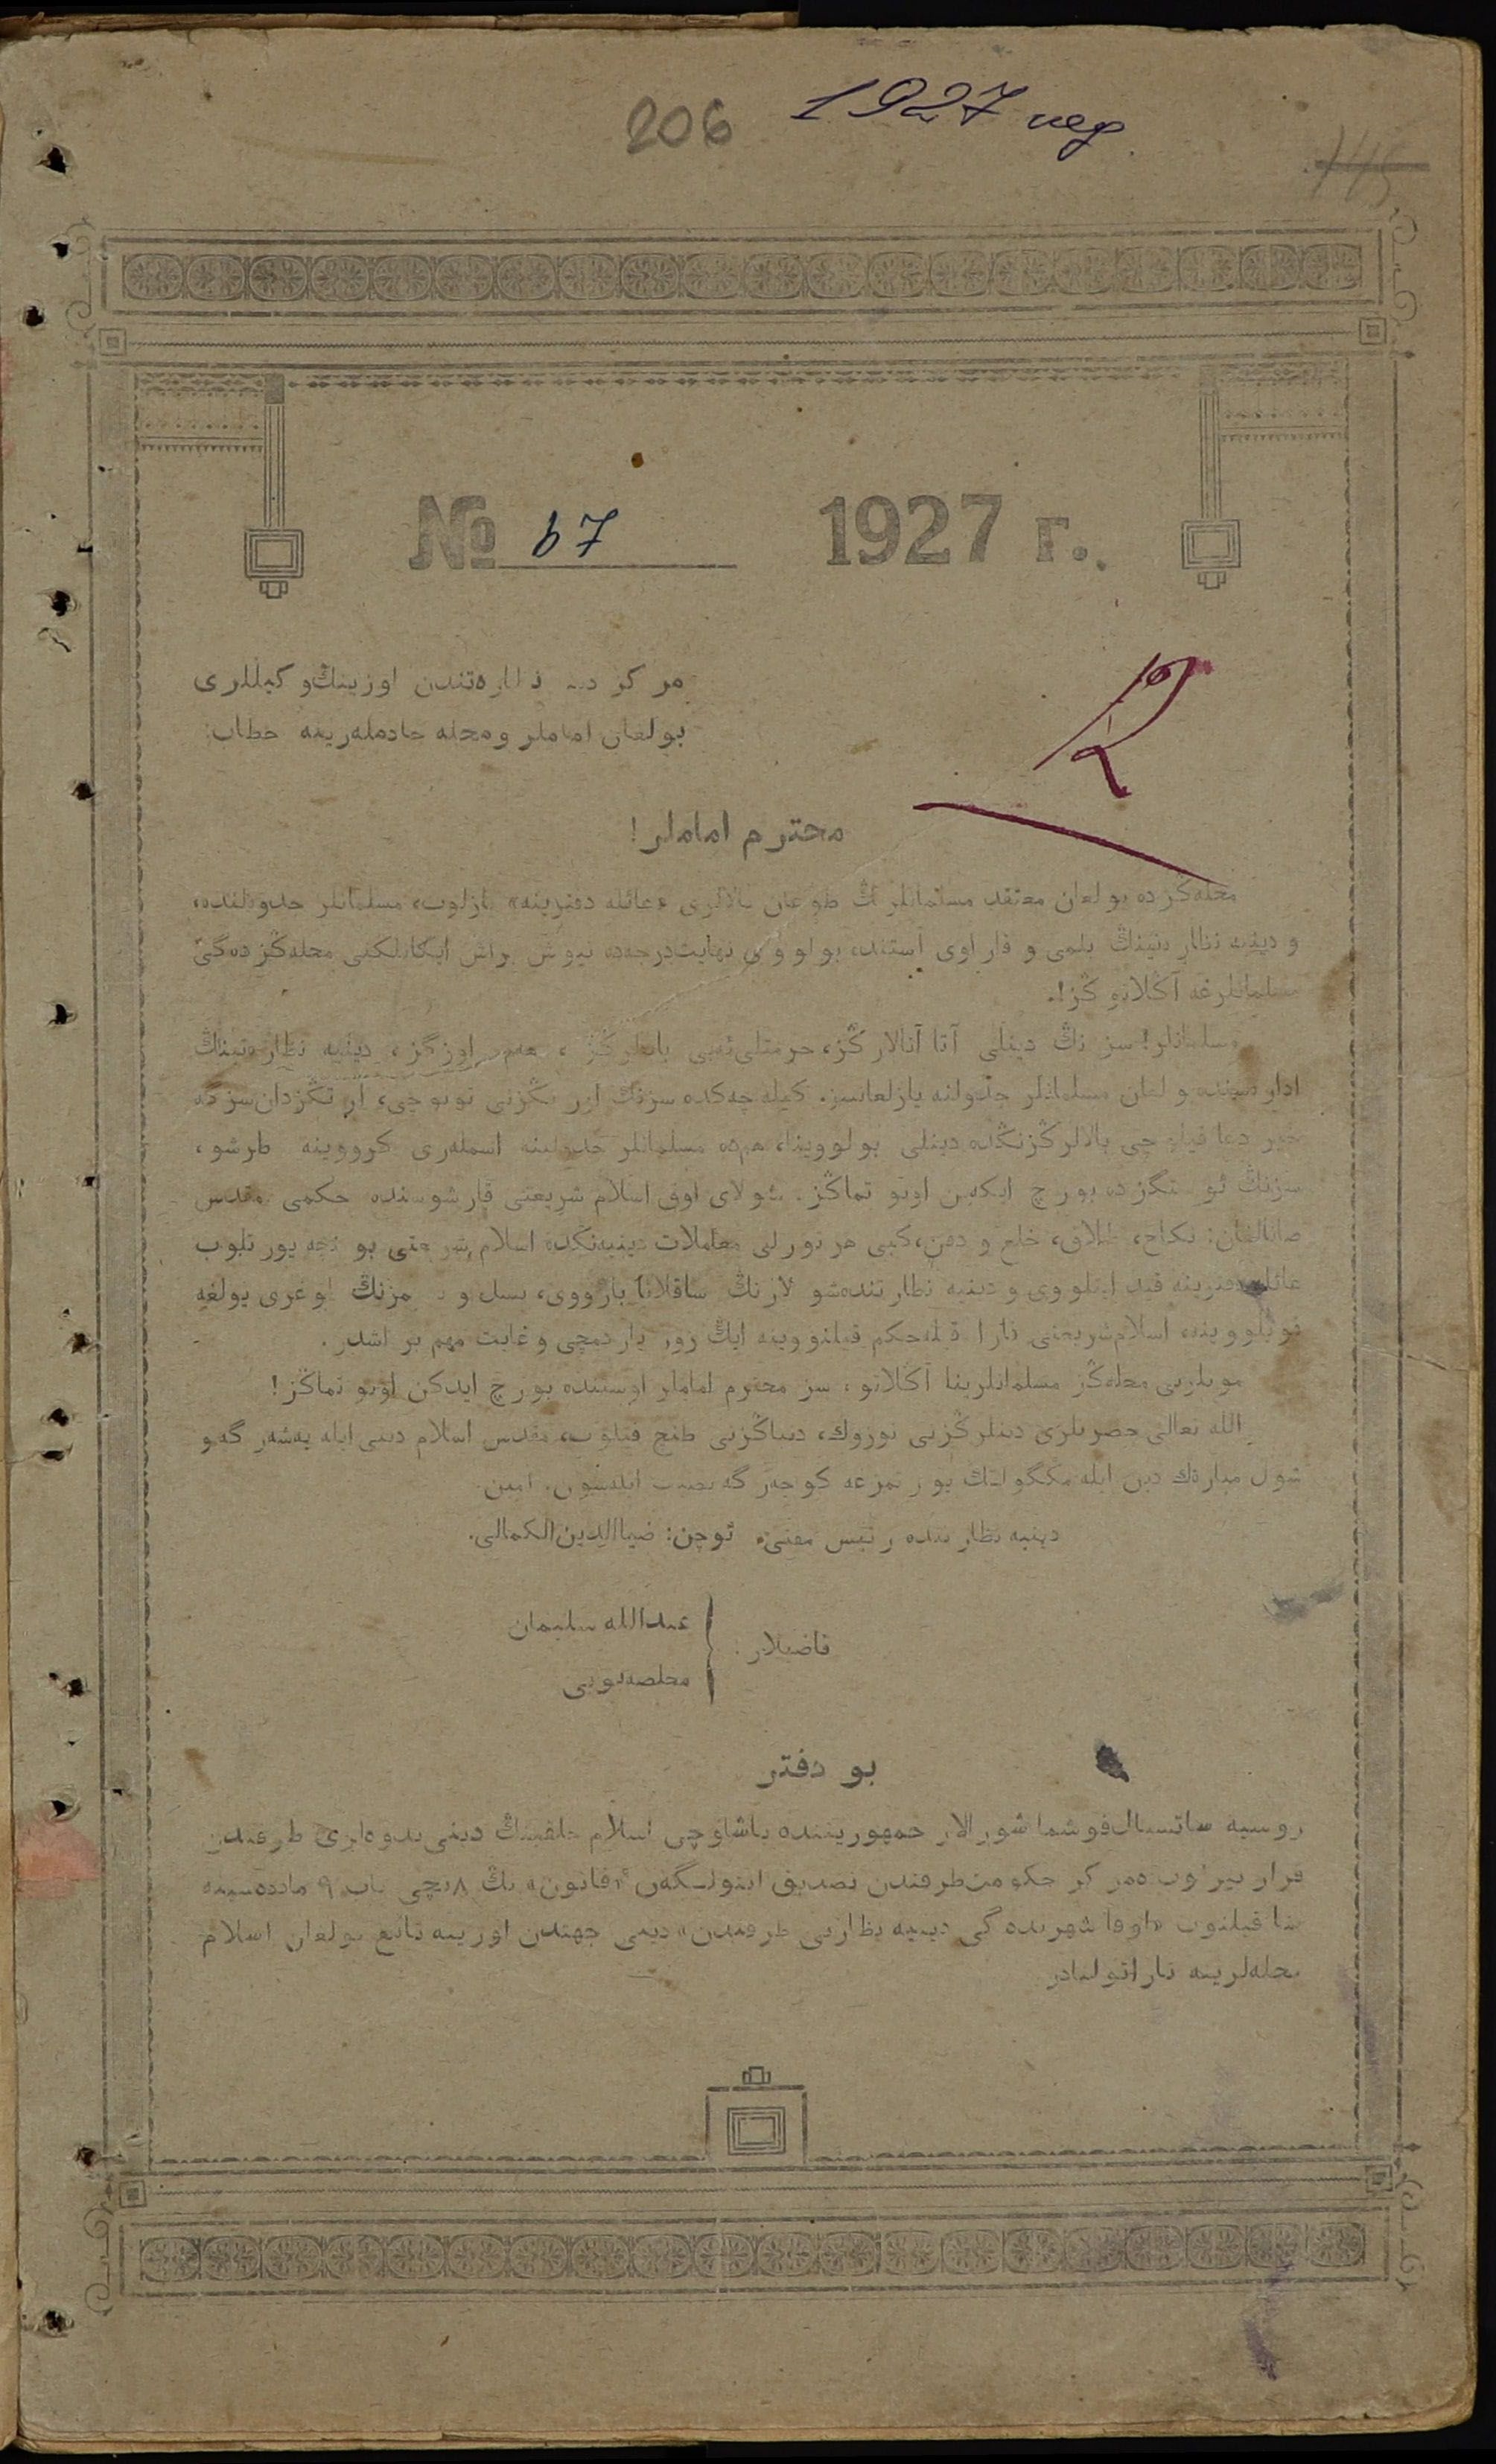 206 1927 иер
145
№ 67 1927 г.
مركز دينيه نظارەتندن اوزينڭ وكيللرى
بولغان اماملر و محله خادملەرينه خطاب:
محترم اماملر!
محلەڭزدە بولغان معتقد مسلمانلرنڭ طوغان بالالرى «عائله دفترينه» يازلوب، مسلمانلر جدولندە،
و دينيه نظارتينڭ بلمى و قاراوى آستندە بولووى نهايت درجەدە تيوش براش ايكانلكنى محلەڭزدەگى
مسلمانلرغه آڭلاتوڭز!.
مسلمانلر! سزنڭ دينلى آتا آنالارڭز، حرمتلى بابالرڭز، هم اوزگز، دينيه نظارەتينڭ
ادارەسندە بولغان مسلمانلر جدولنه يازلغانسز. كيلەچەكدە سزنڭ اورنڭزنى توتوچى، آرتڭزدان سزگه
خير دعا قيلوچى بالالرڭزنڭدە دينلى بولووينا، هم مسلمانلر جدولينه اسملەرى كرووينه طرشو،
سزنڭ ئوستڭزدە بورچ ايكەنن اونوتماڭز. شولاى اوق اسلام شريعتى قارشوسندە حكمى مقدس
صانالغان: نكاح، طلاق، خلع و دفن، كبى هر تورلى معاملات دينيەنڭدە اسلام شريعتى بوينچه يورتلوب
عائله دفترينه قيد ايتلووى و دينيه نظارتندە شولارنڭ ساقلانا بارووى، نسل و مزنڭ طوغرى يولغه
قويلووينه، اسلام شريعتى حكم قيلنووينه ايڭ زور ياردمچى و غايت مهم بر اشدر.
موبلرنى محلەڭز مسلمانلرينا آڭلاتو، سز محترم اماملر اوستندە بورچ ايدكن اونوتماڭز!
الله تعالى حضرتلرى دينلرڭزنى توزوك، دنياڭزنى طنچ قيلوب، مقدس اسلام دينى ايله يەشەرگه و
شول مبارك دين ايله مڭگولك يورتمزغه كوچەرگه نصيب ايلەسون. امين.
دينيه نظارتندە رئيس مفتىء ئوچن: ضياالدين الكمالى.
قاضيلار: عبدالله سليمان
مخلصەبوبى
بو دفتر
روسيه ساتسيال فوشما شورالار جمهوريتندە ياشاوچى اسلام خلقينڭ دينى ندوەلرى طرفندن
قرار بيرلوب هم مركز حكومت طرفندن تصديق ايتولگەن قانوننڭ ٨ نچى باب ٩ ماددەسينه
بنا قيلنوب «اوفا شهرندەگى دينيه نظارتى طرفندن» دينى جهتدن اوزينه تابع بولغان اسلام
محلەلرينه تاراتولادر